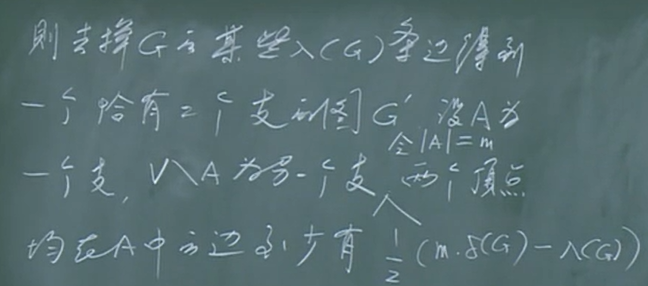 則去掉G之某些λ(G)条边得到
一个恰有2个支的图G' 设A为
令|A|=m
一个支, V\A为另一个支 两个頂点
均在A中之边至少有 1/2 (m·δ(G)-λ(G))